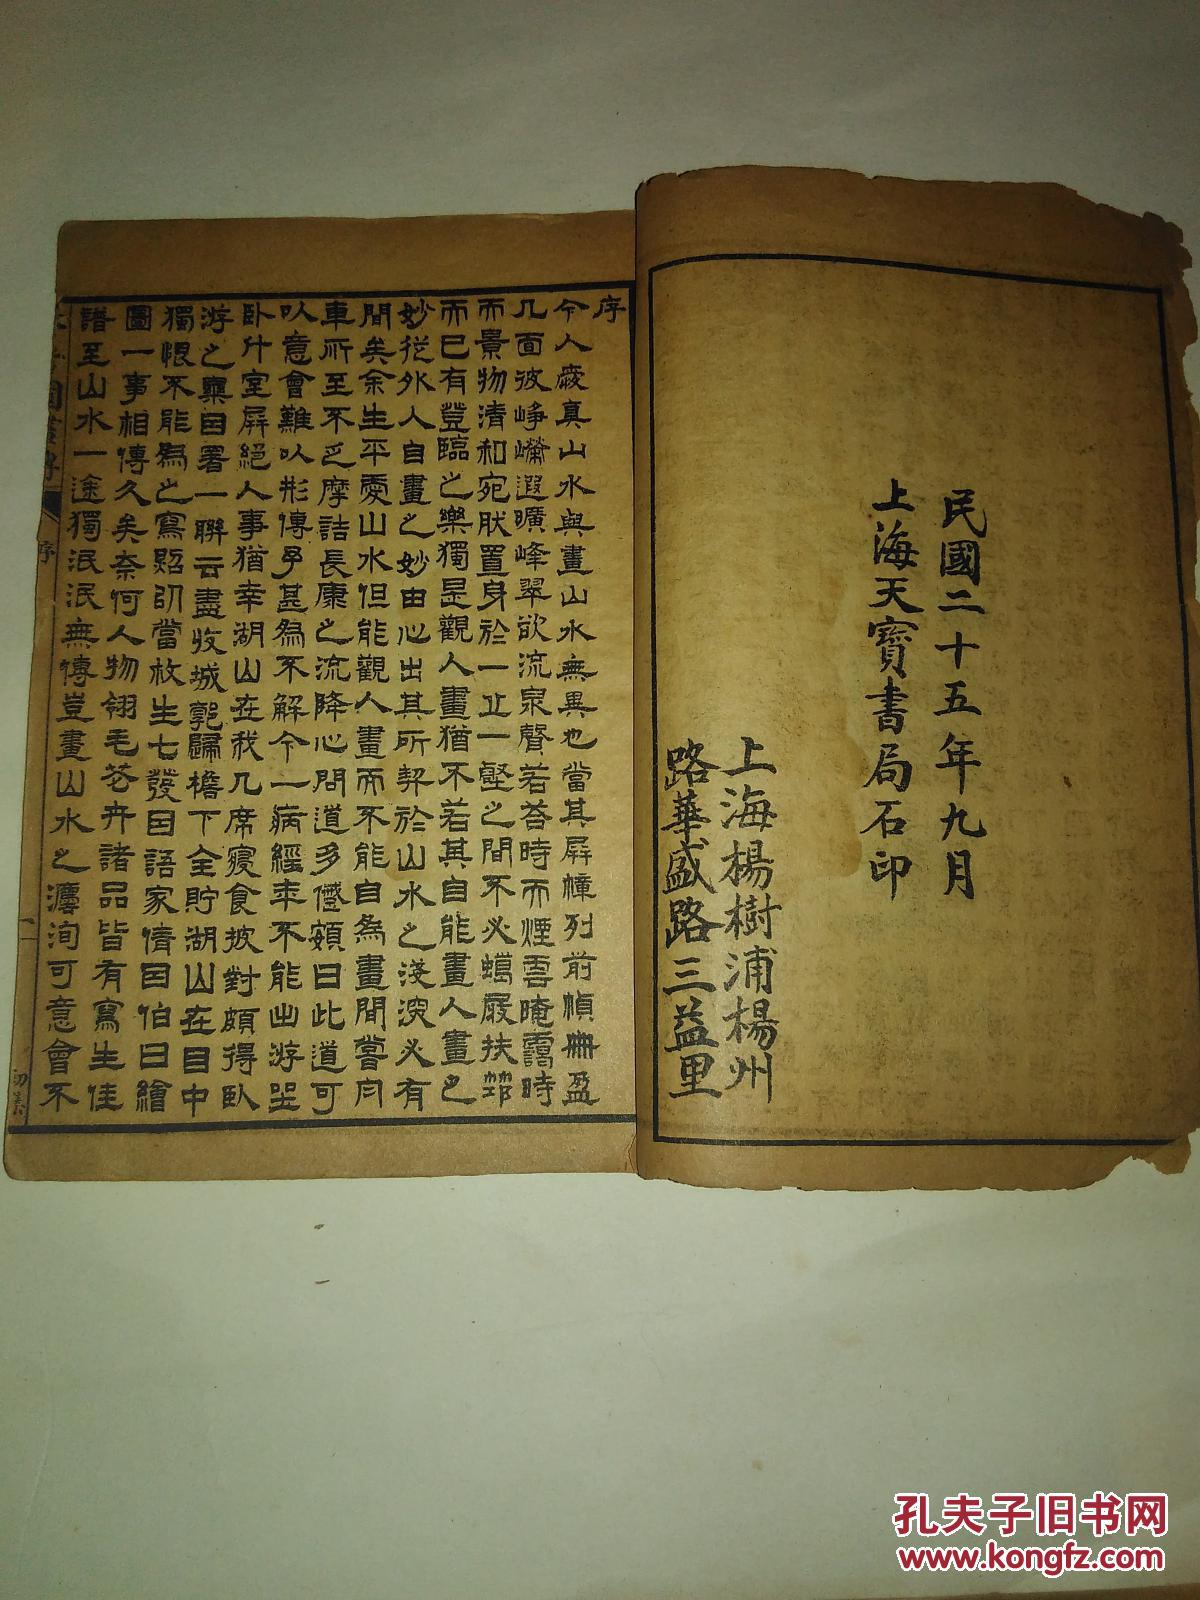 民國二十五年九月
上海天寶書局石印
上海楊樹浦楊州
路華盛路三益里
序
今人蔽真山水與畫山水無異也當其屏幛列前幀冊盈
几面彼崢嶸遐曠峰翠欲流泉聲若荅時而煙雲晻靄時
而景物清和宛肰置身於一丘一壑之間不必蠟屐扶笻
而已有登臨之樂獨是觀人畫猶不若其自能畫人畫之
妙從外人自畫之妙由心出其所契於山水之淺深必有
間矣余生平愛山水但能觀人畫而不能自為畫間嘗同
車所至不乏摩詰長康之流降心問道多僊頞曰此道可
以意會難以形傳予甚為不解今一病經年不能出游坐
臥斗室屏絕人事猶幸湖山在我几席寢食披對頗得臥
游之樂因署一聯云盡收城郭歸檐下全貯湖山在目中
獨恨不能為之寫照以當枚生七發因語家倩因伯曰繪
圖一事相傳久矣奈何人物翎毛花卉諸品皆有寫生佳
譜至山水一途獨泯泯無傳豈畫山水之灋洵可意會不
園畫傳
序
一
初集
孔夫子旧书网
www.kongfz.com